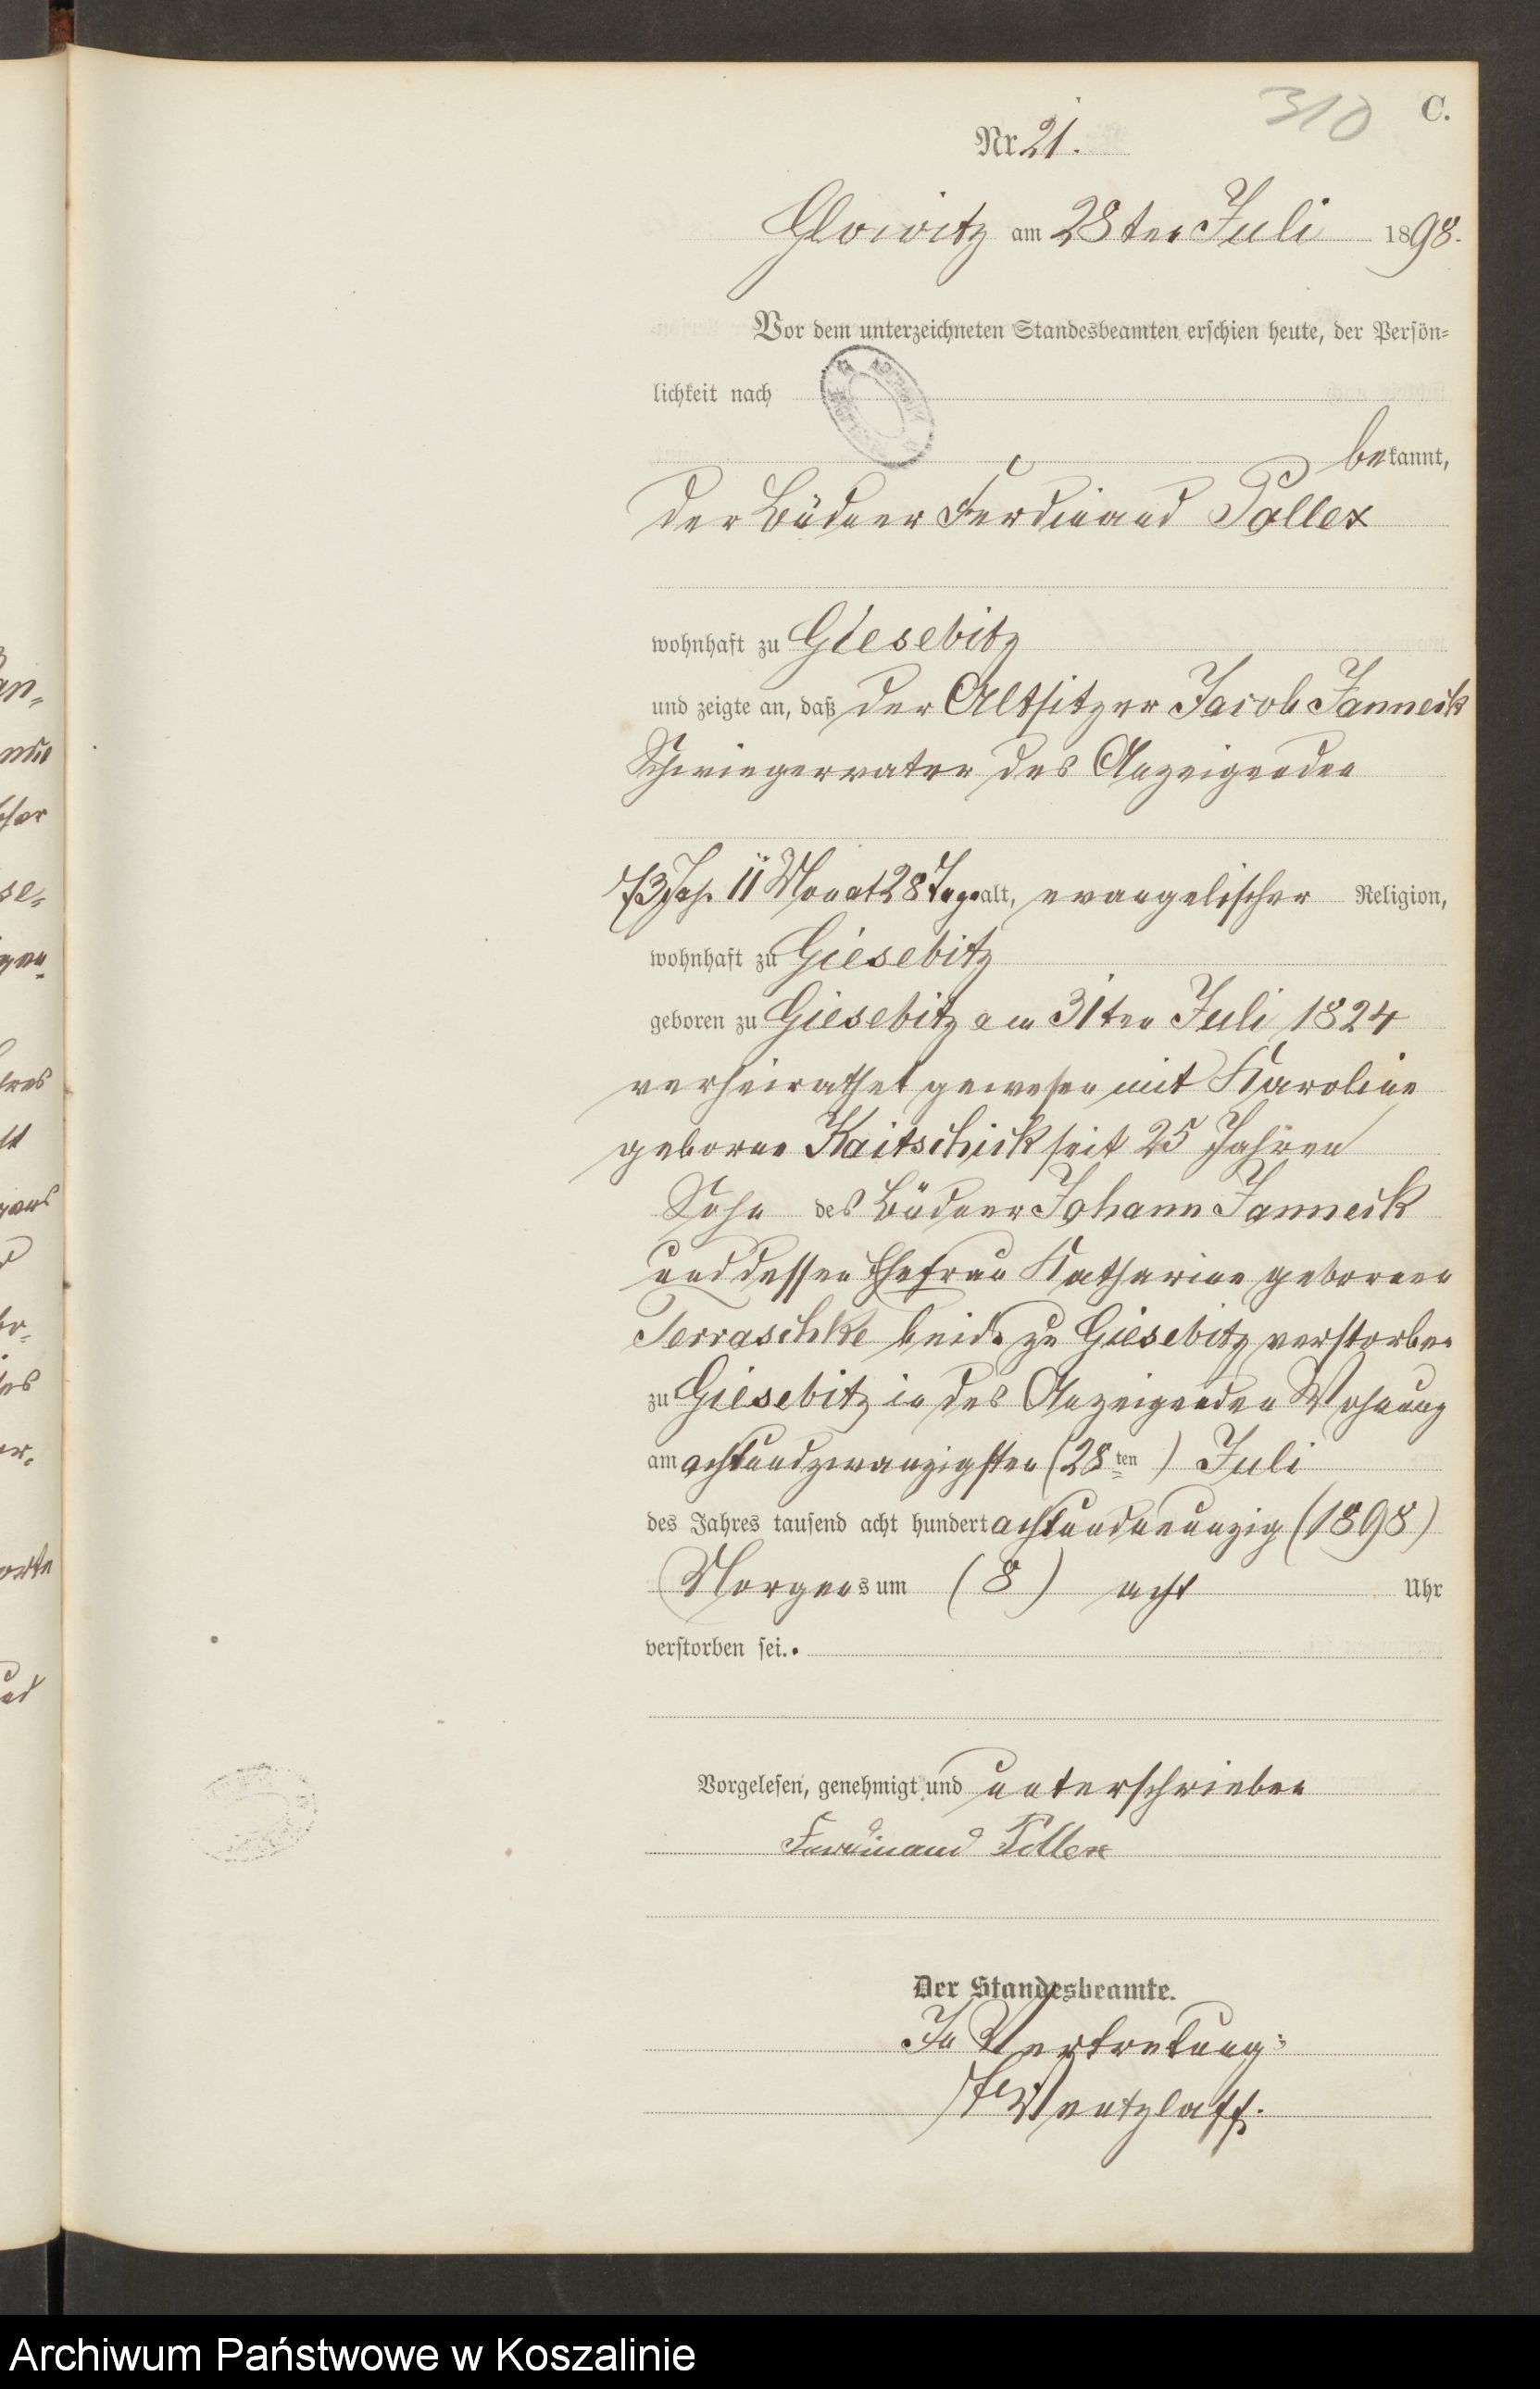 310
C.
Nr 21.
Glowitz am 28ten Juli 1898.
Vor dem unterzeichneten Standesbeamten erschien heute, der Persön=
lichkeit nach
bekannt,
der Büdner Ferdinand Pollex
wohnhaft zu Giesebitz
und zeigte an, daß der Altsitzer Jacob Janneck
Schwiegervater des Anzeigenden
73 Jah. 11 Monat 28 Tage alt, evangelischer Religion,
wohnhaft zu Giesebitz
geboren zu Giesebitz am 31ten Juli 1824
verheirathet gewesen mit Karoline
geborne Kaitschick seit 25 Jahren
Sohn des Büdner Johann Janneck
und dessen Ehefrau Katharine geborenen
Terraschke beide zu Giesebitz verstorben
zu Giesebitz in des Anzeigenden Wohnung
am achtundzwanzigsten (28ten) Juli
des Jahres tausend acht hundert achtundneunzig (1898)
Morgens um (8) acht Uhr
verstorben sei.
Vorgelesen, genehmigt und unterschrieben
Ferdinand Pollex
Der Standesbeamte.
In Vertretung:
Wentzlaff.
Archiwum Państwowe w Koszalinie